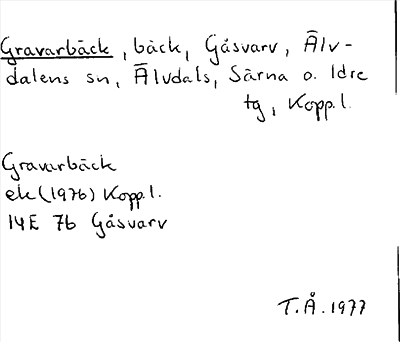 Gravarbäck, bäck, Gåsvarv, Älv-
dalens sn, Älvdals, Särna o. Idre
tg, Kopp.l.
Gravarbäck
ek (1976) Kopp.l.
14E 7b Gåsvarv
T.Å. 1977